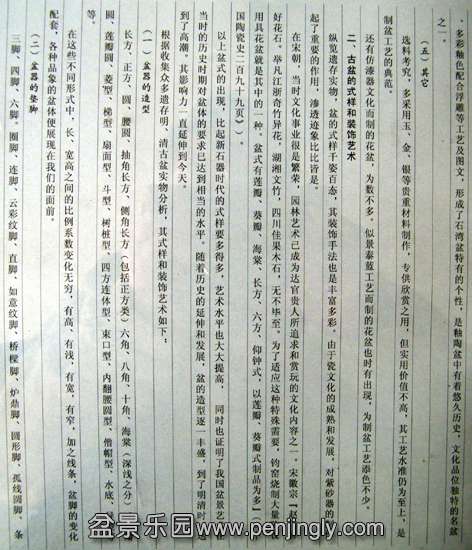 ，多彩釉色配合浮雕等工艺及图文，形成了石湾盆特有的个性，是釉陶盆中有着悠久历史，文化品位独特的名盆
之一。
（五）其它
选料考究，多采用玉、金、银等贵重材料制作，专供欣赏之用，但实用价值不高，其工艺水准仍为至上，是
制盆工艺的典范。
还有仿漆器文化而制的花盆，为数不多。似景泰蓝工艺而制的花盆也时有出现，为制盆工艺添色不少。
二、古盆的式样和装饰艺术
纵览遗存实物，盆的式样千姿百态，其装饰手法也是丰富多彩。由于瓷文化的成熟和发展，对紫砂器的
起了重要的作用，渗透迹象比比皆是。
在宋朝，当时文化事业很是繁荣，园林艺术已成为达官贵人所追求和赏玩的文化内容之一。宋徽宗【赵
好花石。举凡江浙奇竹异花、湖湘文竹，四川佳果木石，无不毕至。为了适应这种特殊需要，钧窑烧制大量
用具花盆就是其中的一种。盆式有莲瓣、葵瓣、海棠、长方、六方、仰钟式，以莲瓣、葵瓣式制品为多】
国陶瓷史二百九十九页》）。
以上盆式的出现，比起新石器时代的式样要多得多，艺术水平也大大提高，同时也证明了我国盆景艺
当时的历史时期对盆体的要求已达到相当的水平。随着历史的延伸和发展，盆的造型逐一丰盛，到了明清时
到了高潮，其影响力一直延伸到今天。
根据收集众多遗存明、清古盆实物分析，其式样和装饰艺术如下：
（一）盆器的造型
长方、正方、圆、腰圆、抽角长方、侧角长方（包括正方类）六角、八角、十角、海棠（深浅之分）
圆、莲瓣圆、菱型、梯型、扇面型、斗型、树桩型、四方连体型、束口型、内翻腰圆型、僧帽型、水底、
等。
在这些不同形式中，长、宽高之间的比例系数变化无穷，有高、有浅，有宽、有窄，加之线条，盆脚的变化
配套，各种品象的盆体便展现在我们的面前。
（二）盆器的垫脚
三脚、四脚、六脚、圈脚、连脚、云彩纹脚、直脚、如意纹脚、桥樑脚、炉鼎脚、圆形脚、孤线圆脚、条
盆景乐园www.penjingly.com